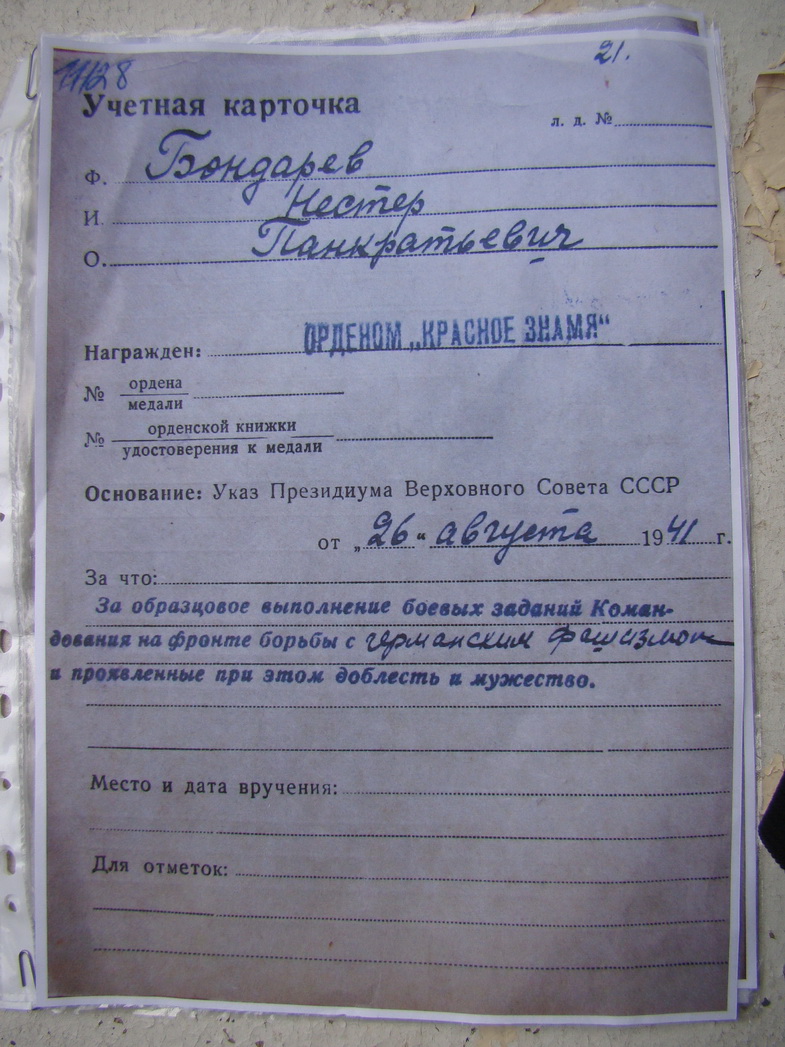 21.
Учетная карточка
л. д. №
Ф. Бондарев
И. Нестер
О. Панкратьевич
Награжден: ОРДЕНОМ „КРАСНОЕ ЗНАМЯ“
№ ордена
медали
№ орденской книжки
удостоверения к медали
Основание: Указ Президиума Верховного Совета СССР
от „26“ августа 1941 г.
За что:
За образцовое выполнение боевых заданий Коман-
дования на фронте борьбы с германским фашизмом
и проявленные при этом доблесть и мужество.
Место и дата вручения:
Для отметок: